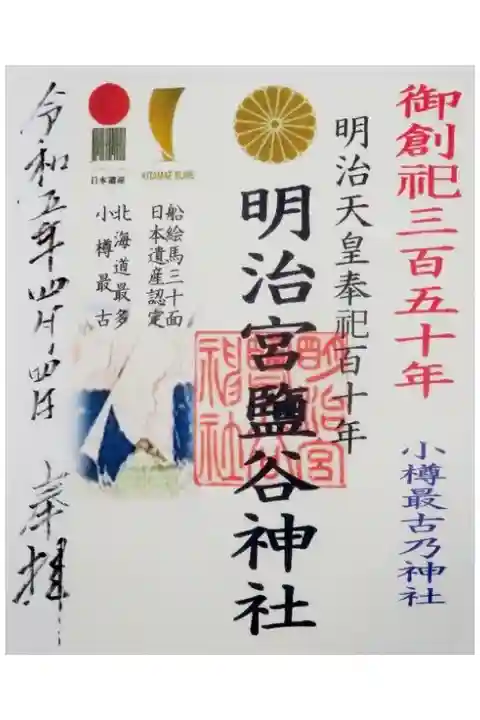 御創祀三百五十年
小樽最古乃神社
明治天皇奉祀百十年
明治宮鹽谷神社
明治宮
鹽谷
神社
KITAMAE BUNE
船絵馬三十面
日本遺産認定
日本遺産
北海道最多
小樽最古
令和五年四月四日
奉拝